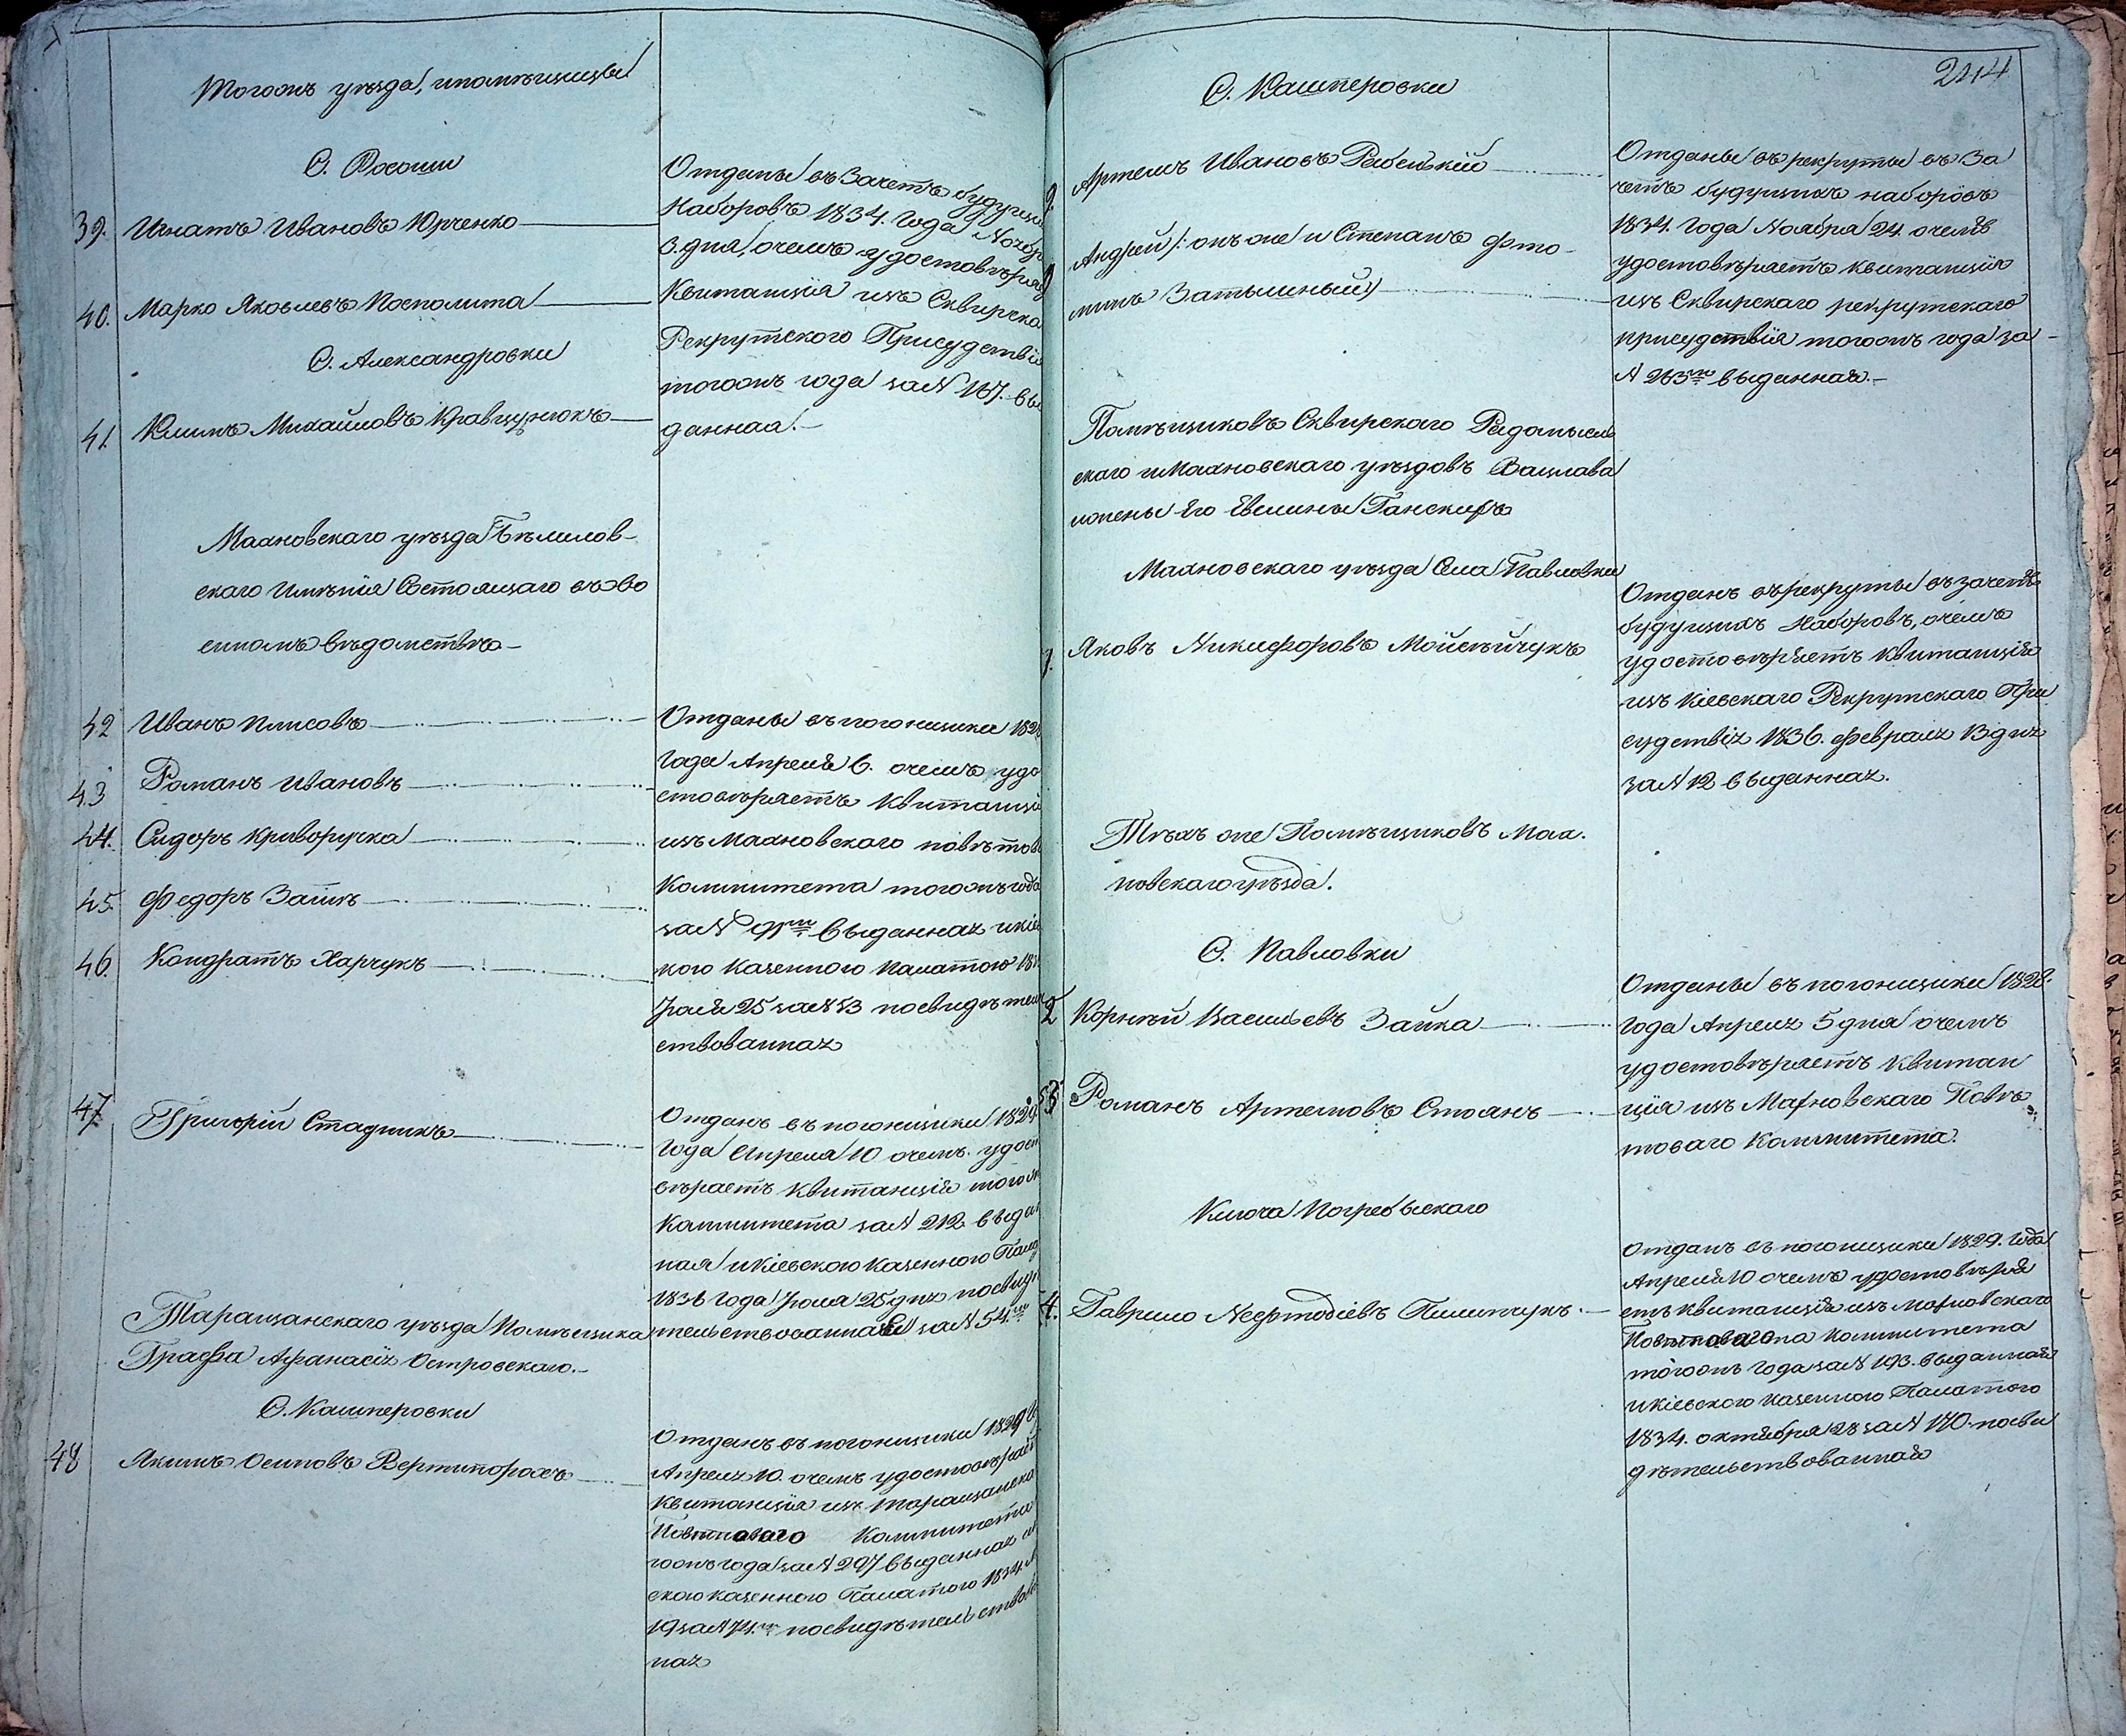 Тогожъ уѣзда, ипомѣщицы
С. Рогозни
39. Игнатъ Ивановъ Юрченко
40. Марко Яковлевъ Посполита
С. Александровки
41. Климъ Михайловъ Кравцунюкъ
Отданы въ Зачетъ будущи
Наборовъ 1834. Года Ноябр
3. дня, очемъ удостовѣряе
Квитанція изъ Сквирска
Рекрутского Присудствія
тогожъ года за№ 187. вы
данная.-
Махновскаго уѣзда Бѣлилов-
скаго Имѣнія Состоящаго въ во
енномъ вѣдомствѣ-
42 Иванъ Плисовъ
43 Романъ Ивановъ
44. Сидоръ Криворучка
45. Федоръ Заяцъ
46. Кондратъ Харчукъ
Отданы въ погонщики 182
Года Апреля 6. очемъ удо
стовѣряетъ Квитанція
изъ Махновскаго повѣтов
Коммитета тогожъ года
за№ 91мъ выданная икіев
кого Казенного Палатою 18
Іюля 25 за№ 53 посвидѣтел
ствованная
47. Григорій Стадникъ
Отданъ въ погонщики 1829
Года Апреля 10 очемъ удост
вѣраетъ Квитанція тогож
Коммитета за№ 212 выдан
ная икіевского Казенного Пала
1836 Года Іюля 25 дня посвидѣ
тельствованная за№ 54.мъ
Таращанскаго уѣзда Помѣщика
Графа Афанасія Островскаго.-
С. Кашперовки
48 Якимъ Осиповъ Вертипорохъ
Отданъ въ погонщики 1829
Апреля 10. очемъ удостовѣраетъ
Квитанція изъ Таращанска
Повѣтоваго Коммитета
гожъ года за№ 297 выданная
ского Казенного Палатою 1834.
19 за№ 74.мъ посвидѣтельствован
ная
244
С. Кашперовки
Артемъ Ивановъ Рабенькій
Андрей /: онъ же и Степанъ Фто-
минъ Затылный)
Отданы въ рекруты въ За
четъ будущихъ наборовъ
1834. Года Ноября 24. очемъ
удостовѣряетъ квитанція
изъ Сквирскаго рекрутскаго
присудствія тогожъ года за-
№ 263мъ выданная.-
Помѣщиковъ Сквирскаго Радомысль
скаго и Махновскаго уѣздовъ Вацлава
ижены Его Евелины Ганскихъ
Махновскаго уѣзда Села Павловки
1. Яковъ Никифоровъ Мойсѣйчукъ
Отданъ въ рекруты въ зачетъ
будущихъ Наборовъ, очемъ
удостовѣряетъ Квитанція
изъ Кіевскаго Рекрутскаго При
судствія 1836. Февраля 13 дня
за№ 12 выданная.
Тѣхъ же Помѣщиковъ Мах.
новскаго уѣзда.
С. Павловки
2 Корнѣй Васильевъ Заика
3 Романъ Артемовъ Стоянъ
Отданы въ погонщики 1828.
года Апреля 5 дня очемъ
удостовѣряетъ Квитан
ція изъ Махновскаго Повѣ
товаго Коммитета.
Ключа Погребыскаго
4. Гаврило Мефтодіевъ Пилипчукъ.
Отданъ въ погонщики 1829. Года
Апреля 10 очемъ удостовѣряе
етъ Квитанція изъ Махновскаго
Повѣтоваго Коммитета
тогожъ года за№ 193. выданная
икіевского Казенного Палатого
1834. октября 28 за№ 170. посви
дѣтельствованная